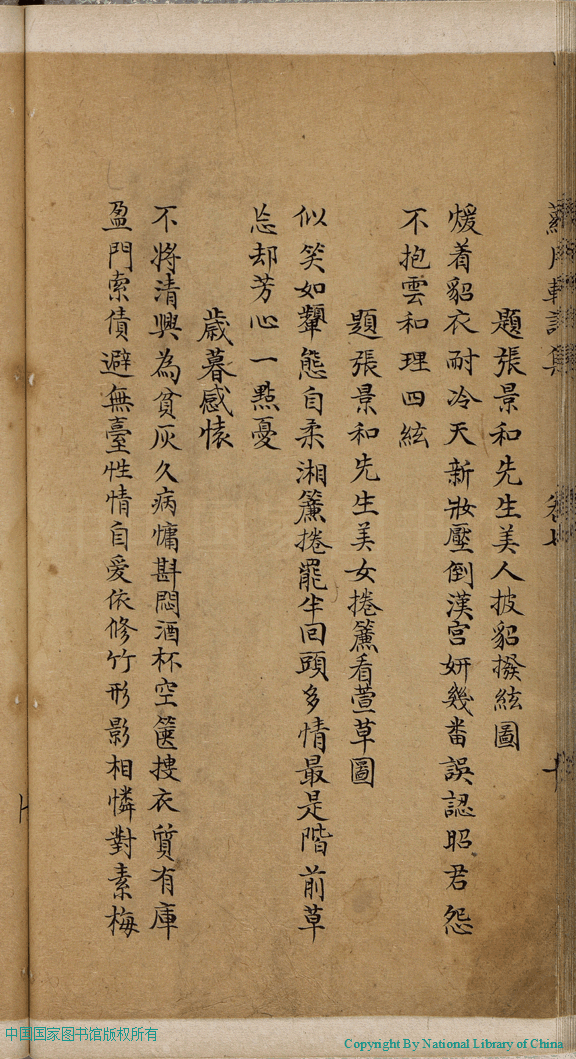 題張景和先生美人披貂撥絃圖
煖着貂衣耐冷天新妝壓倒漢宮妍幾番誤認昭君怨
不抱雲和理四絃
題張景和先生美女捲簾看萱草圖
似笑如顰態自柔湘簾捲罷半回頭多情最是階前草
忘却芳心一點憂
歲暮感懷
不將清興為貧灰久病慵斟悶酒杯空篋摟衣質有庫
盈門索債避無臺性情自愛依修竹形影相憐對素梅
中国国家图书馆版权所有
Copyright By National Library of China